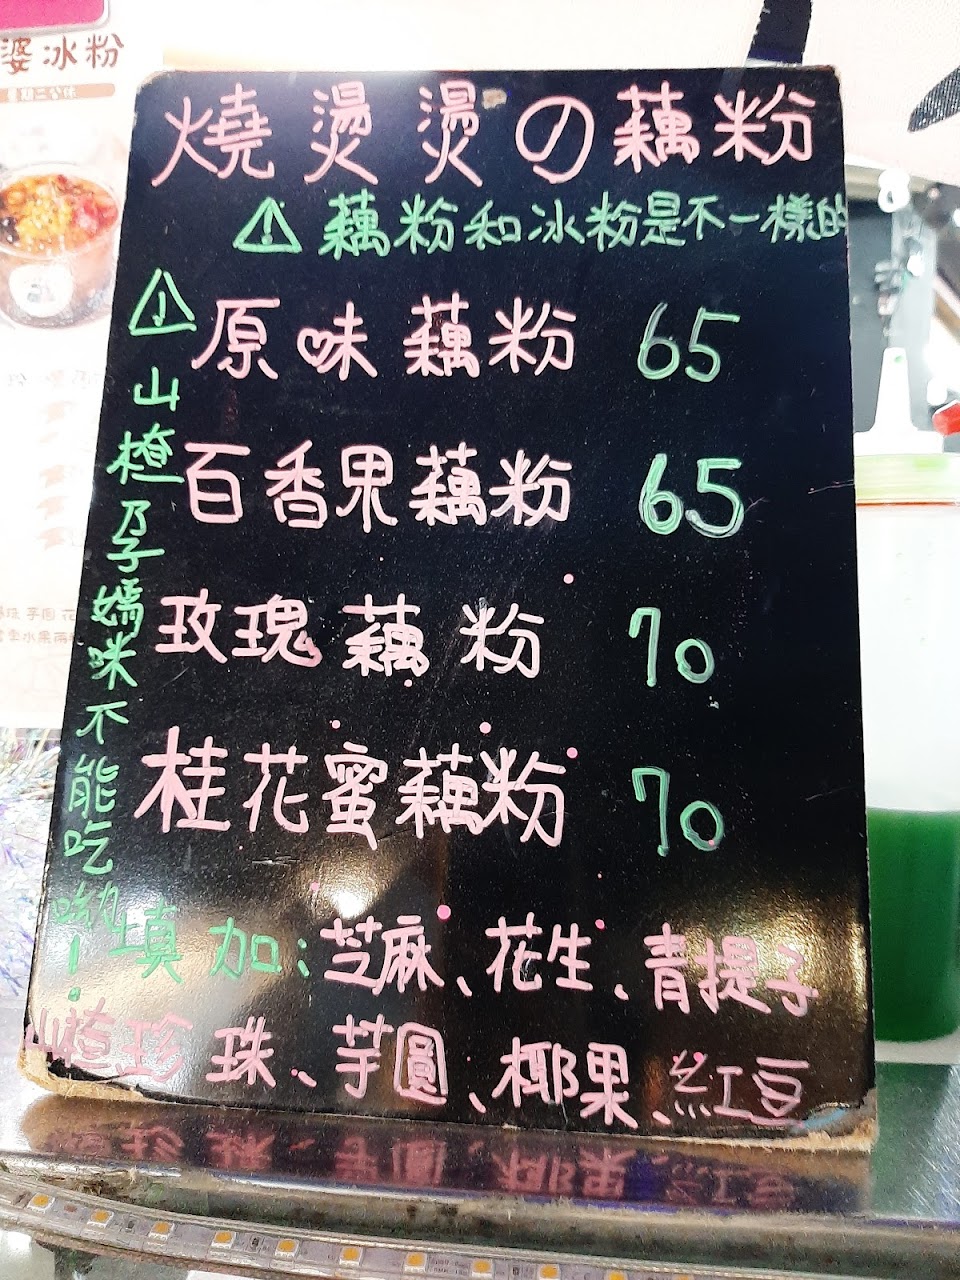 婆冰粉
星期二公休
燒燙燙の藕粉
⚠藕粉和冰粉是不一樣的
原味藕粉 65
百香果藕粉 65
玫瑰藕粉 70
桂花蜜藕粉 70
⚠山楂孕媽咪不能吃呦!
填加:芝麻、花生、青提子
山楂珍珠、芋圓、椰果、紅豆
珠 芋圓 花
水果兩